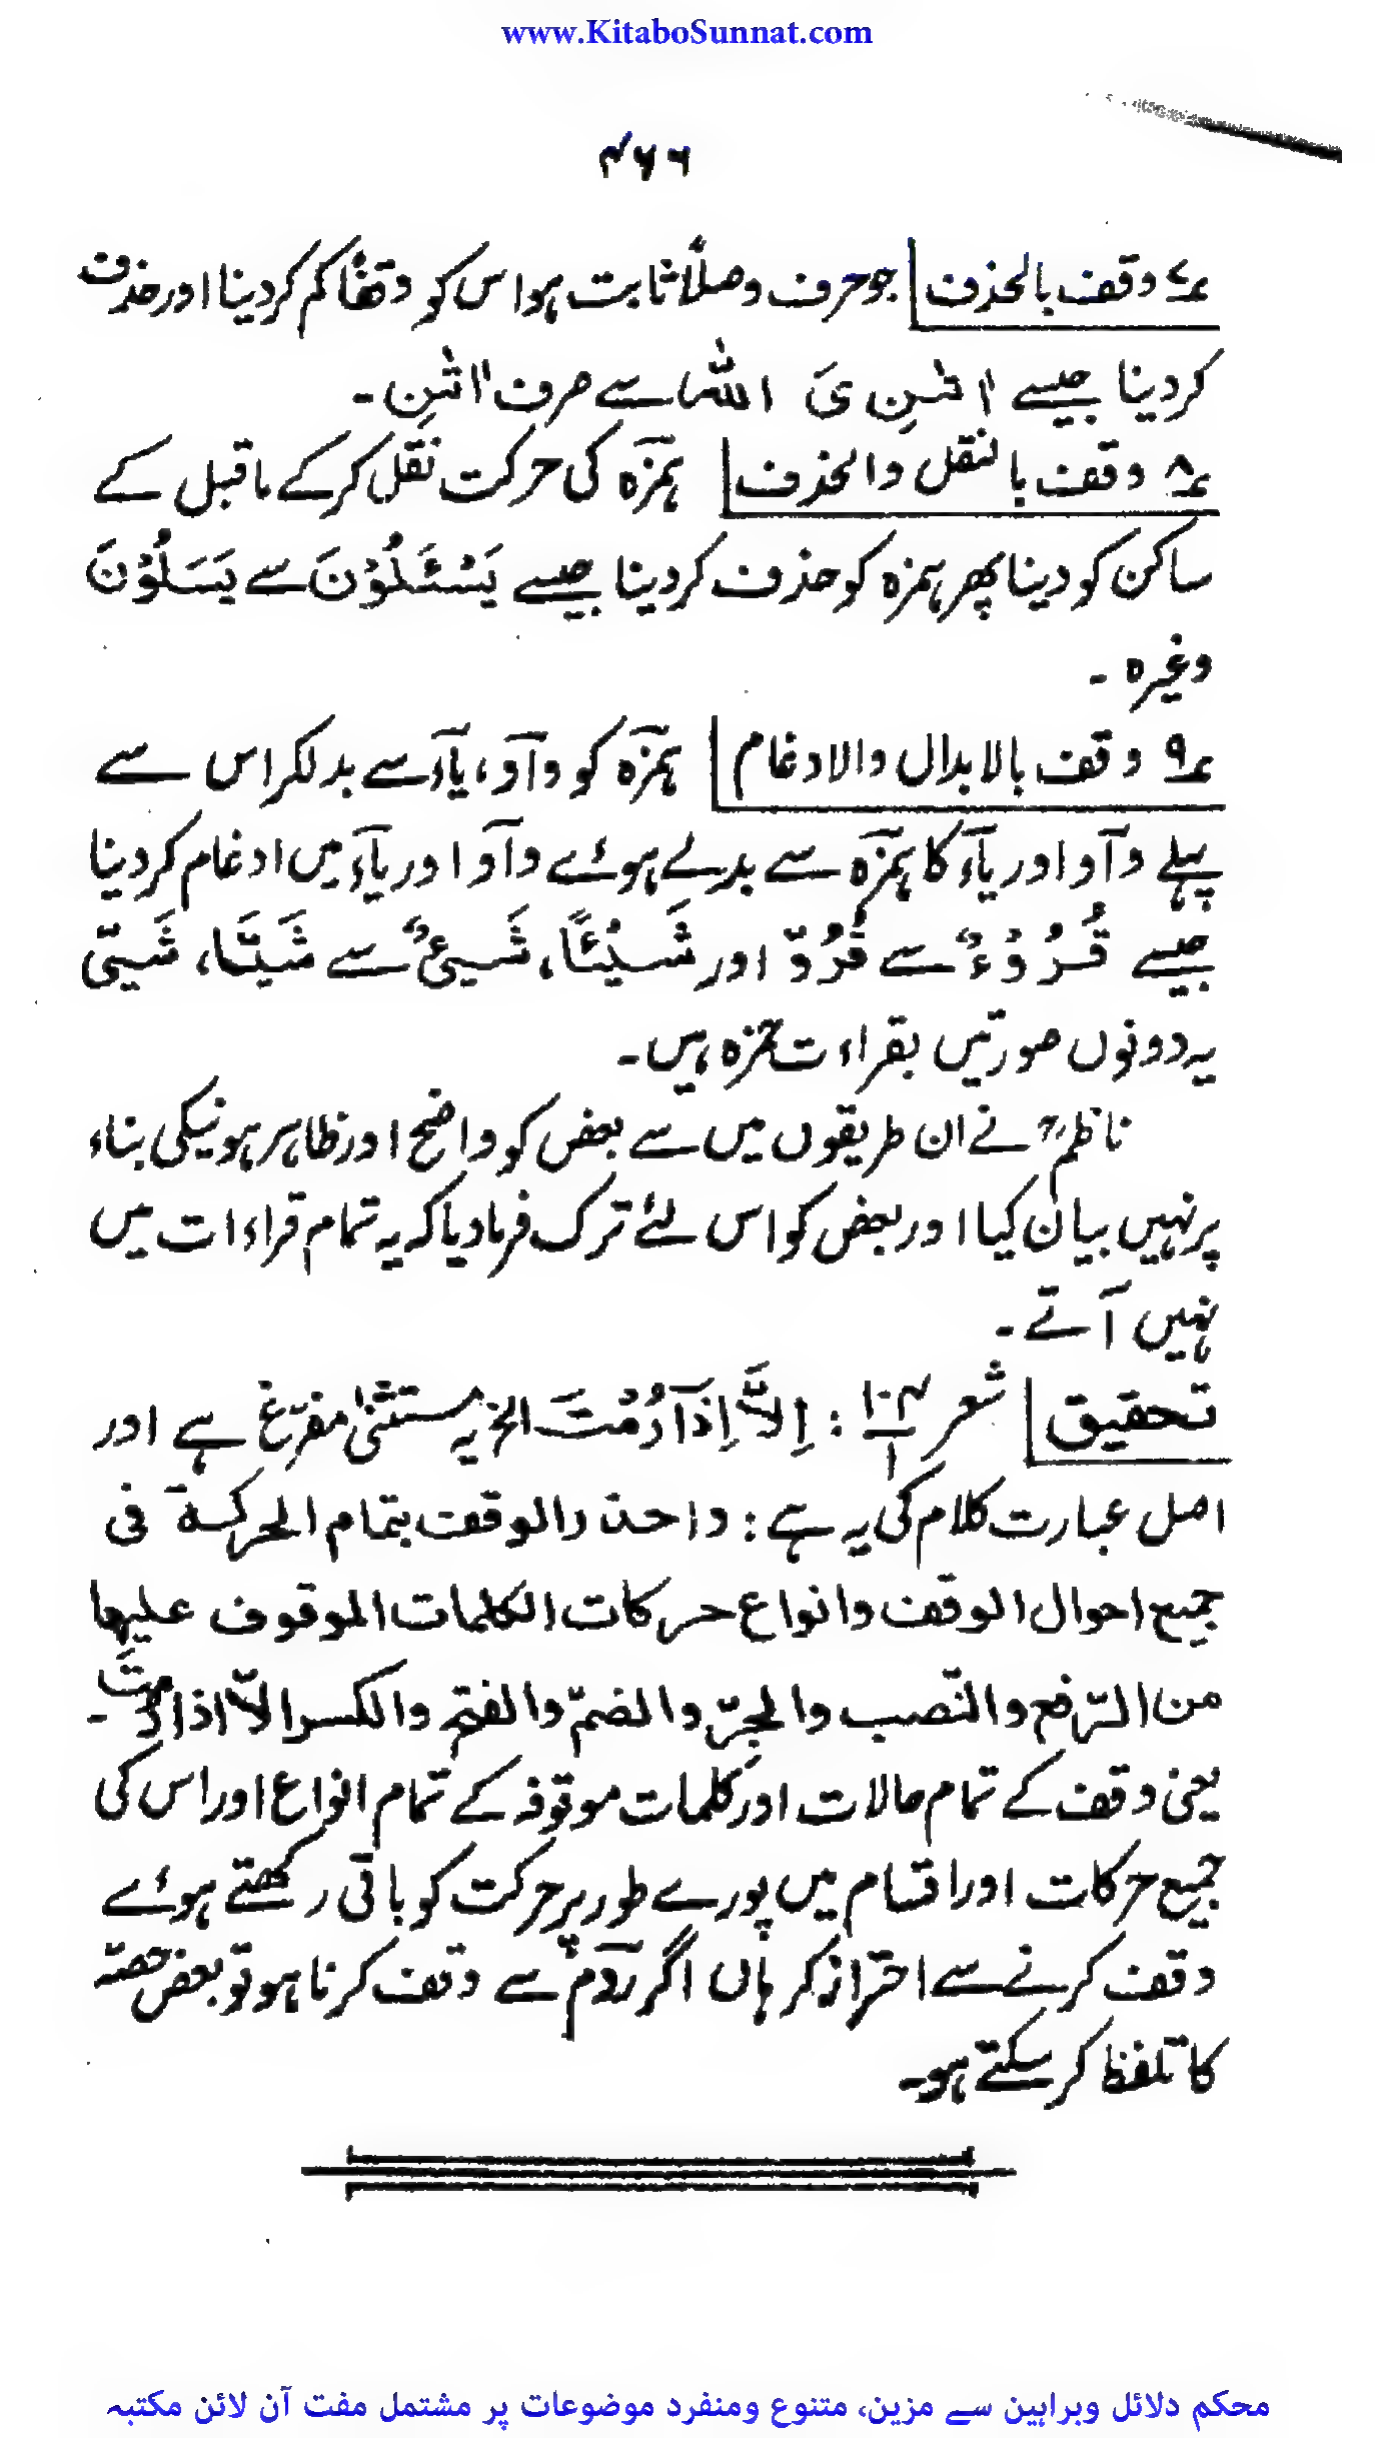 www.KitaboSunnat.com
۴۶۶
۷؎ وقف بالحذف جو حرف وصلاً ثابت ہو اس کو وقفاً کم کردینا اور حذف
کردینا جیسے اٰتٰىنِ یَ اللّٰہُ سے صرف اٰتٰنِ ۔
۸؎ وقف بالنقل والحذف ہمزہ کی حرکت نقل کرکے ماقبل کے
ساکن کو دینا پھر ہمزہ کو حذف کردینا جیسے یَسْئَلُوْنَ سے یَسَلُوْنَ
وغیرہ ۔
۹؎ وقف بالابدال والادغام ہمزہ کو واو، یاء سے بدلکر اس سے
پہلے واو اور یاء کا ہمزہ سے بدلے ہوئے واو اور یاء میں ادغام کردینا
جیسے قُرُوْءٌ سے قُرُوّ اور شَیْئًا، شَیْئٌ سے شَیَّا، شَیّ
یہ دونوں صورتیں بقراءت حمزہ ہیں۔
ناظمؒ نے ان طریقوں میں سے بعض کو واضح اور ظاہر ہونیکی بناء
پر نہیں بیان کیا اور بعض کو اس لئے ترک فرمادیا کہ یہ تمام قراءات میں
نہیں آتے ۔
تحقیق شعر ۱۰۴/۱ : اِلَّا اِذَا رُمْتَ الخ یہ مستثنیٰ مفرّغ ہے اور
اصل عبارت کلام کی یہ ہے : واحذر الوقف بتمام الحرکۃ فی
جمیع احوال الوقف وانواع حرکات الکلمات الموقوف علیہا
من الرّفع والنّصب والجرّ والضمّ والفتح والکسر الّا اذا رُمتَ ۔
یعنی وقف کے تمام حالات اور کلمات موقوفہ کے تمام انواع اور اس کی
جمیع حرکات اور اقسام میں پورے طور پر حرکت کو باقی رکھتے ہوئے
وقف کرنے سے احتراز کر ہاں اگر رَوم سے وقف کرنا ہو تو بعض حصّہ
کا تلفظ کر سکتے ہو۔
محکم دلائل وبراہین سے مزین، متنوع ومنفرد موضوعات پر مشتمل مفت آن لائن مکتبہ